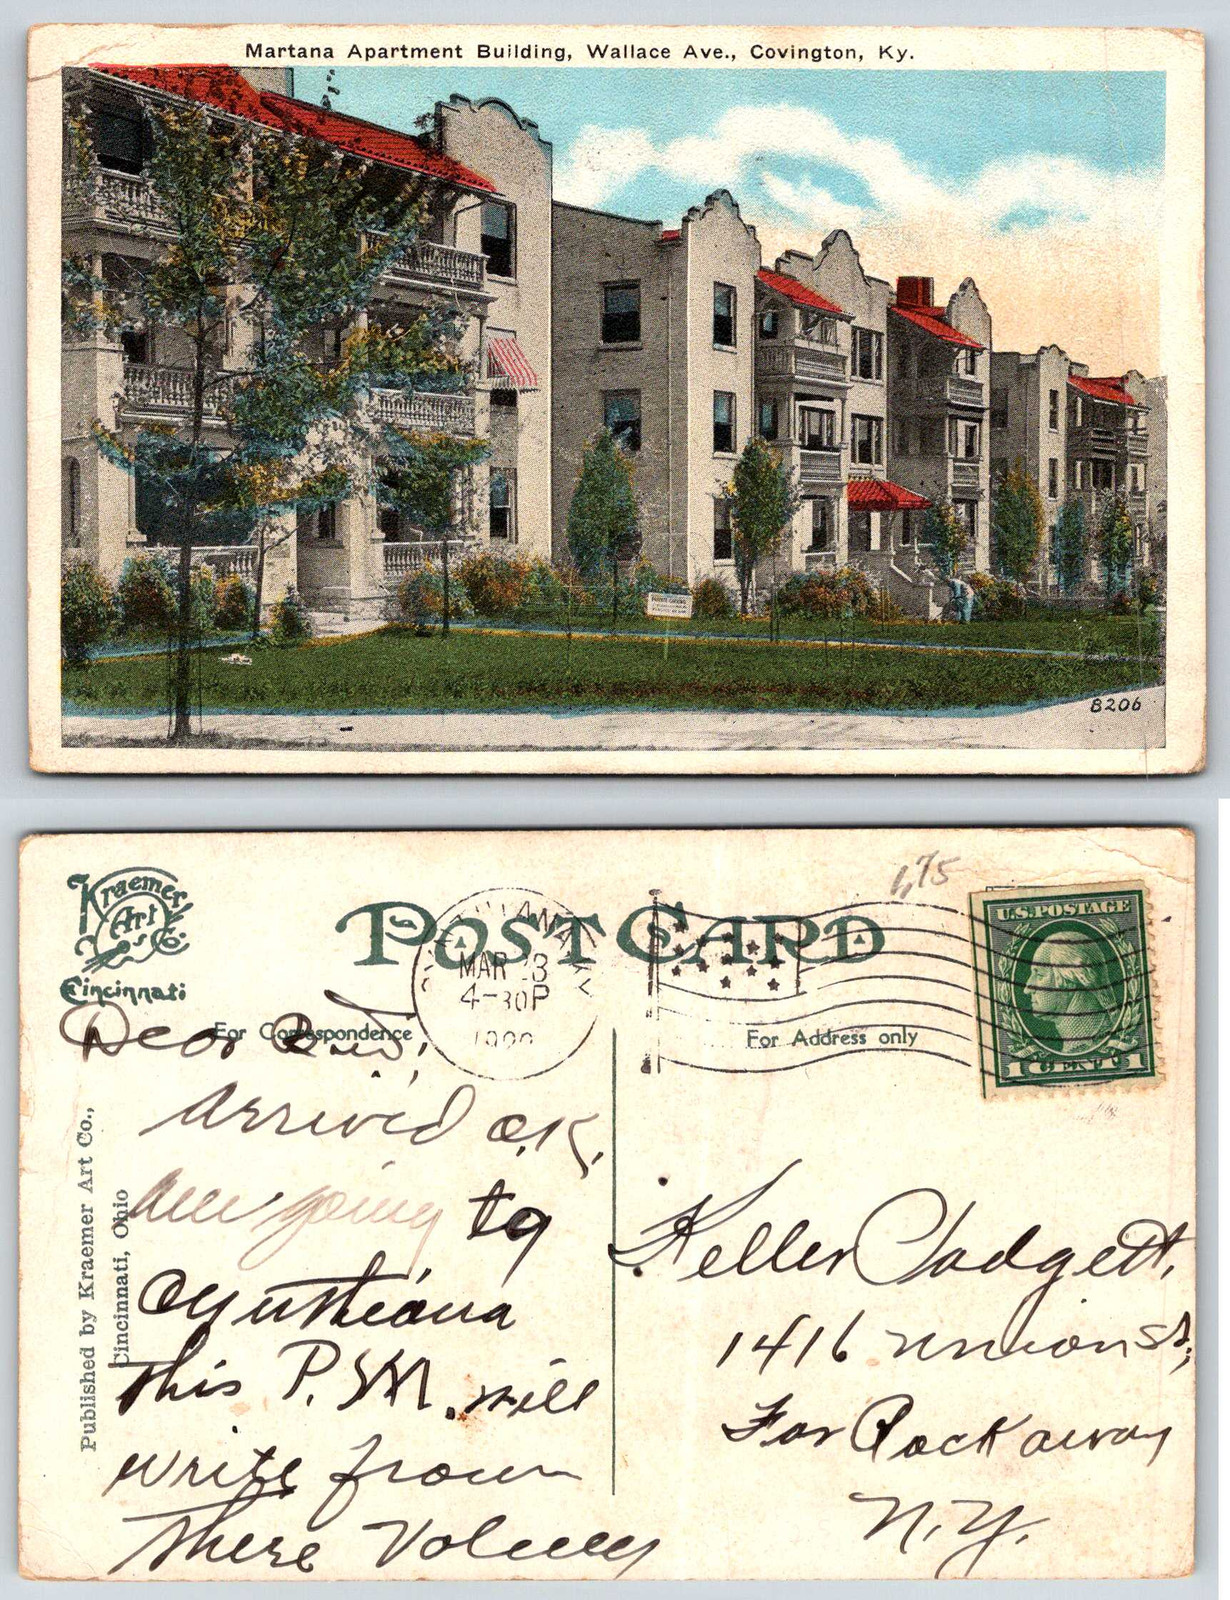 Martana Apartment Building, Wallace Ave., Covington, Ky.
8206
Kraemer
Art
Co.
Cincinnati
POST CARD
1,75
MAR 3
4-30P
U.S. POSTAGE
1 CENT 1
For Correspondence
For Address only
Published by Kraemer Art Co.,
Cincinnati, Ohio
Dear
Arrived O.K.
Am going to
Cynthiana
this P.M. will
write from
there
Keller
1416 Union St,
Far Rockaway
N.Y.